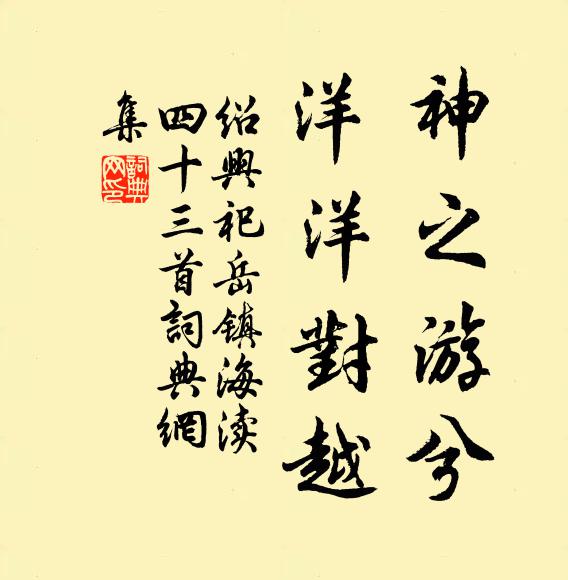 神之游兮
洋洋對越
绍興祀岳鎮海渎
四十三首詞典網
集
詞典
网印